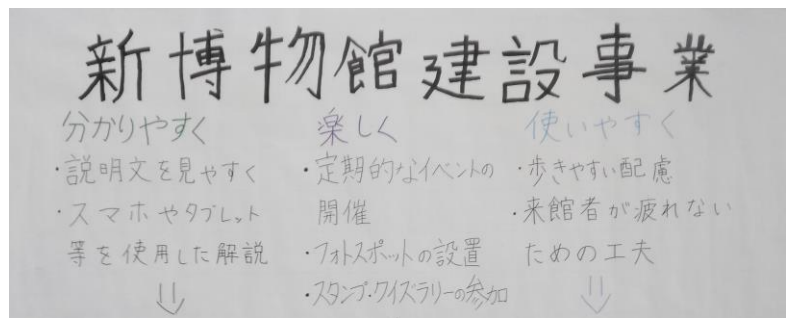 新博物館建設事業
分かりやすく
・説明文を見やすく
・スマホやタブレット
等を使用した解説
⇓
楽しく
・定期的なイベントの
開催
・フォトスポットの設置
・スタンプ・クイズラリーの参加
使いやすく
・歩きやすい配慮
・来館者が疲れない
ための工夫
⇓